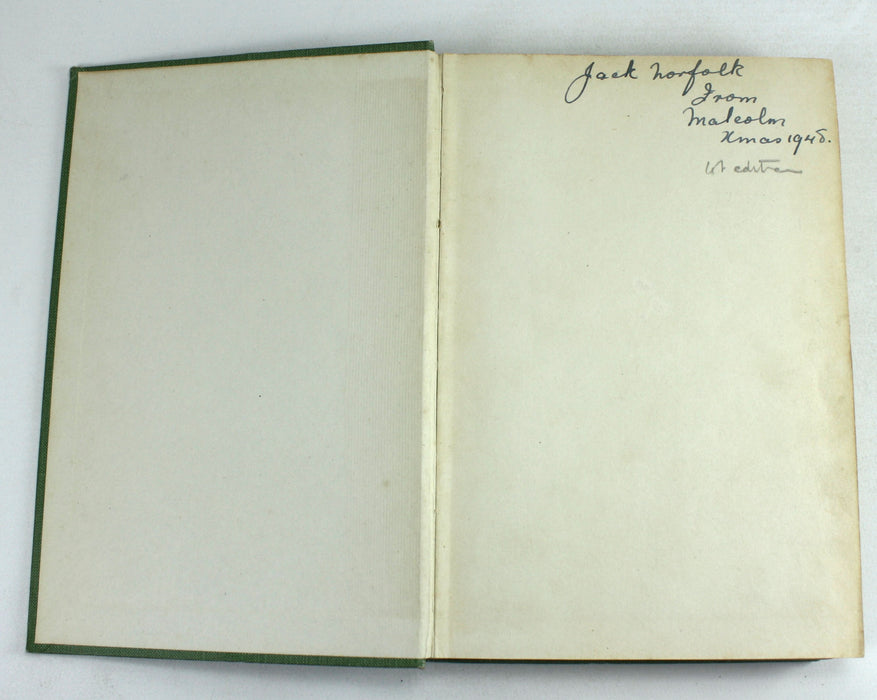 Jack Norfolk
From
Malcolm
Xmas 1948.
1st edition